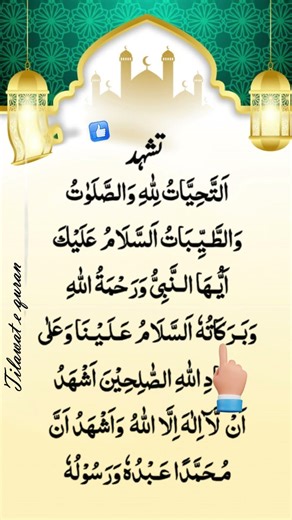 تشہد
اَلتَّحِيَّاتُ لِلّٰهِ وَالصَّلَوٰتُ
وَالطَّيِّبَاتُ اَلسَّلَامُ عَلَيْكَ
اَيُّهَا النَّبِيُّ وَرَحْمَةُ اللّٰهِ
وَبَرَكَاتُهٗ اَلسَّلَامُ عَلَيْنَا وَعَلٰى
ادِ اللّٰهِ الصّٰلِحِيْنَ اَشْهَدُ
اَنْ لَّآ اِلٰهَ اِلَّا اللّٰهُ وَاَشْهَدُ اَنَّ
مُحَمَّدًا عَبْدُهٗ وَرَسُوْلُهٗ
Tilawat e quran